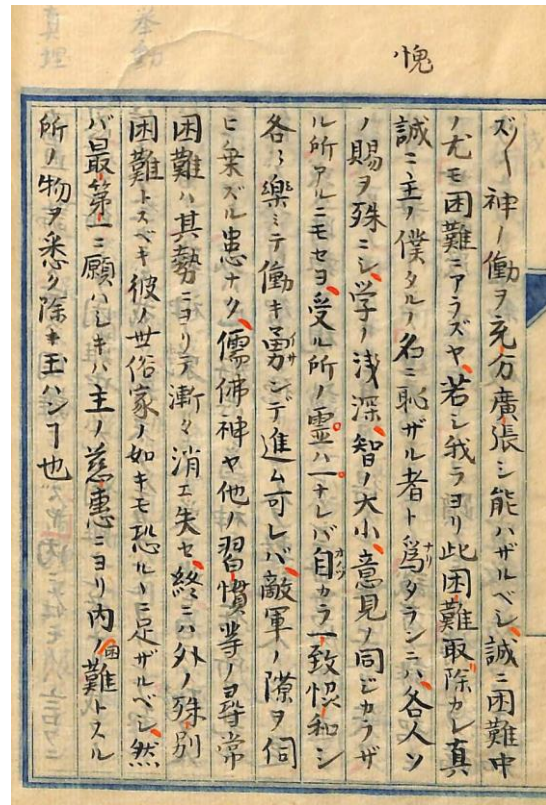 愧
ズヿ神ノ働ヲ充分廣張シ能ハザルベシ、誠ニ困難中
ノ尤モ困難ニアラズヤ、若シ我ラヨリ此困難取除カレ真
誠ニ主ノ僕タルノ名ニ恥ザル者ト爲タランニハ、各人ソ
ノ賜ヲ殊ニシ、学ノ浅深、智ノ大小、意見ノ同ジカラザ
ル所アルニモセヨ、受ル所ノ霊ハ一ナレバ自カラ一致惚和シ
各々樂ミテ働キ勇ンデ進ム可レバ、敵軍ノ隙ヲ伺
ヒ乗ズル患ナク、儒佛神ヤ他ノ習慣等ノヨ尋常
困難ハ其勢ニヨリテ漸々消エ失セ、終ニハ外ノ殊別
困難トスベキ彼ノ世俗家ノ如キモ恐ルヽニ足ザルベシ、然
バ最第一ニ願ハシキハ主ノ慈恵ニヨリ内ノ困難トスル
所ノ物ヲ悉ク除キ玉ハンヿ也